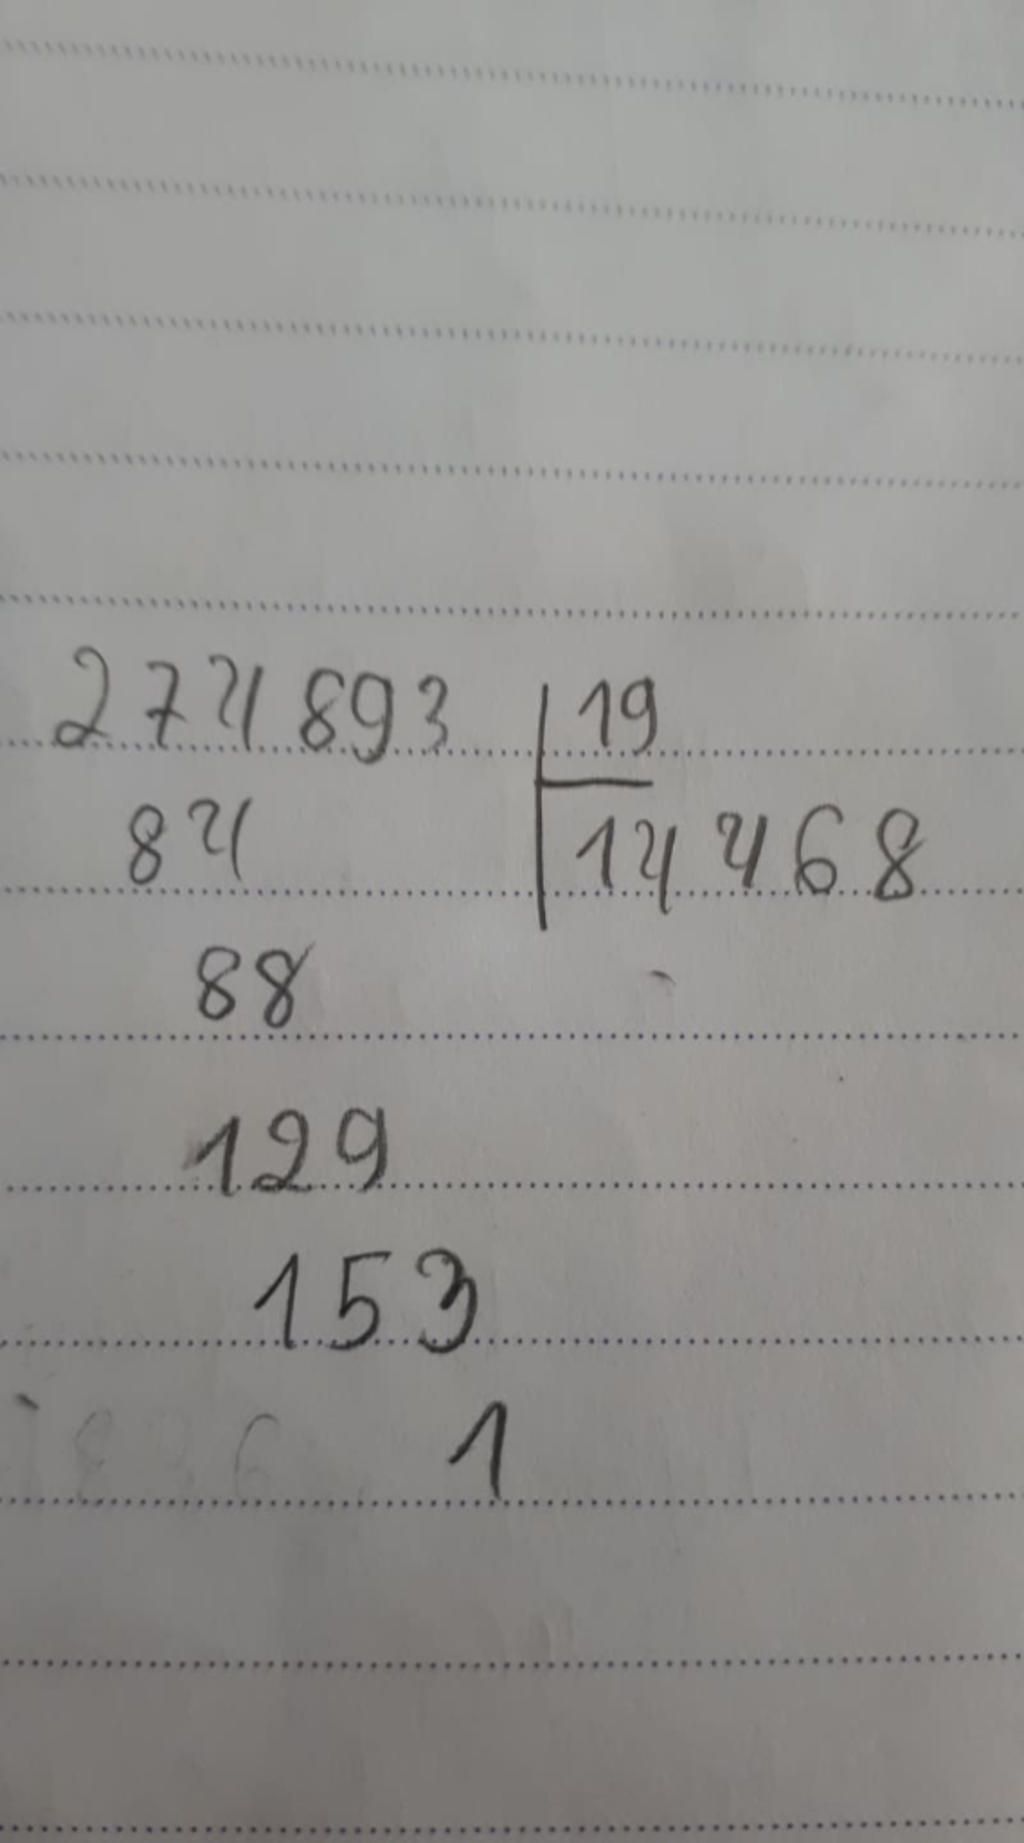 274893 19
84 14468
88
129
153
1